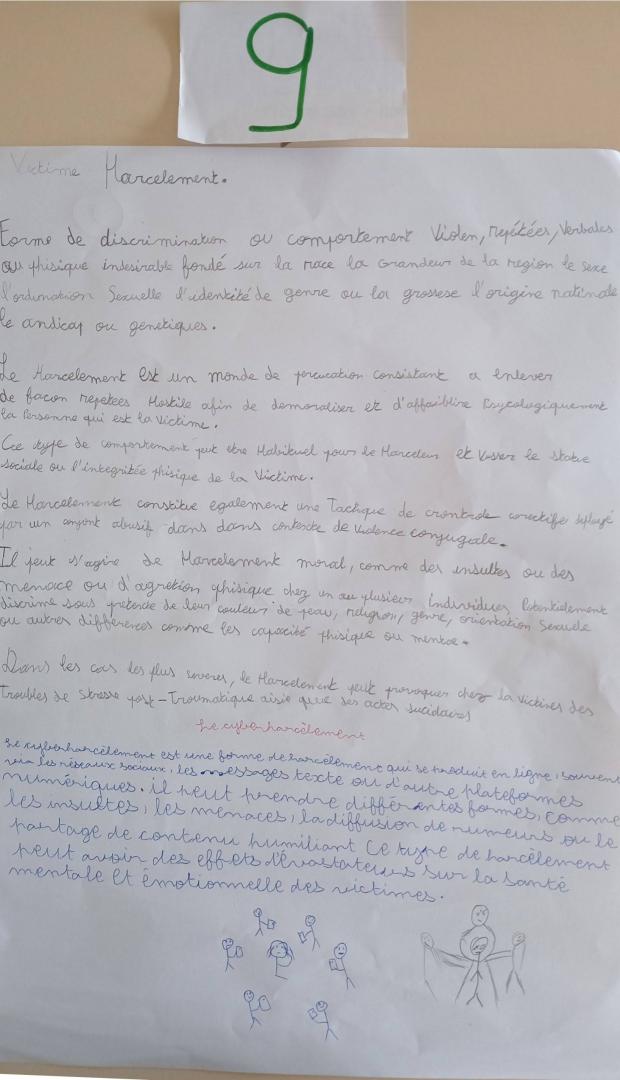 9
Victime Harcelement.
Forme de discrimination ou comportement Violen, repétées, Verbales
ou phisique indesirable fondé sur la race la Grandeur de la region le sexe
l'ordination Sexuelle l'identité de genre ou la grossese l'origine natinale
le andicap ou genetiques.
Le Harcelement est un monde de percucation consistant a enlever
de facon repetées Hostile afin de demoraliser et d'affaiblire Psycologiquement
la Personne qui est la Victime.
Ce type de comportement peut etre Habituel pour le Harceleur et Visser le statue
sociale ou l'integritée phisique de la Victime.
Le Harcelement constitue egalement une Tachique de crontrole corectife
par un abusif dans dans contexte de Violence conjugale.
Il peut s'agire de Harcelement moral, comme des insultes ou des
menace ou d'agretion phisique chez un au plusieur individues Potentielement
discrime sous pretexte de leur couleur de peau, religion, genre, orientation Sexuele
ou autres differences comme les capacité phisique ou mentae.
Dans les cas les plus severes, le Harcelement peut provoquer chez la victimes des
Troubles de stresse post-Troumatique aisie que ses actes suicidaires
Le cyberharcèlement
Le cyberharcèlement est une forme de harcèlement qui se produit en ligne, souvent
via les réseaux sociaux, les messages texte ou d'autre plateformes
numériques. il peut prendre différentes formes, comme
les insultes, les menaces, la diffusion de rumeurs ou le
partage de contenu humiliant Ce type de harcèlement
peut avoir des effets dévastateurs sur la santé
mentale et émotionnelle des victimes.